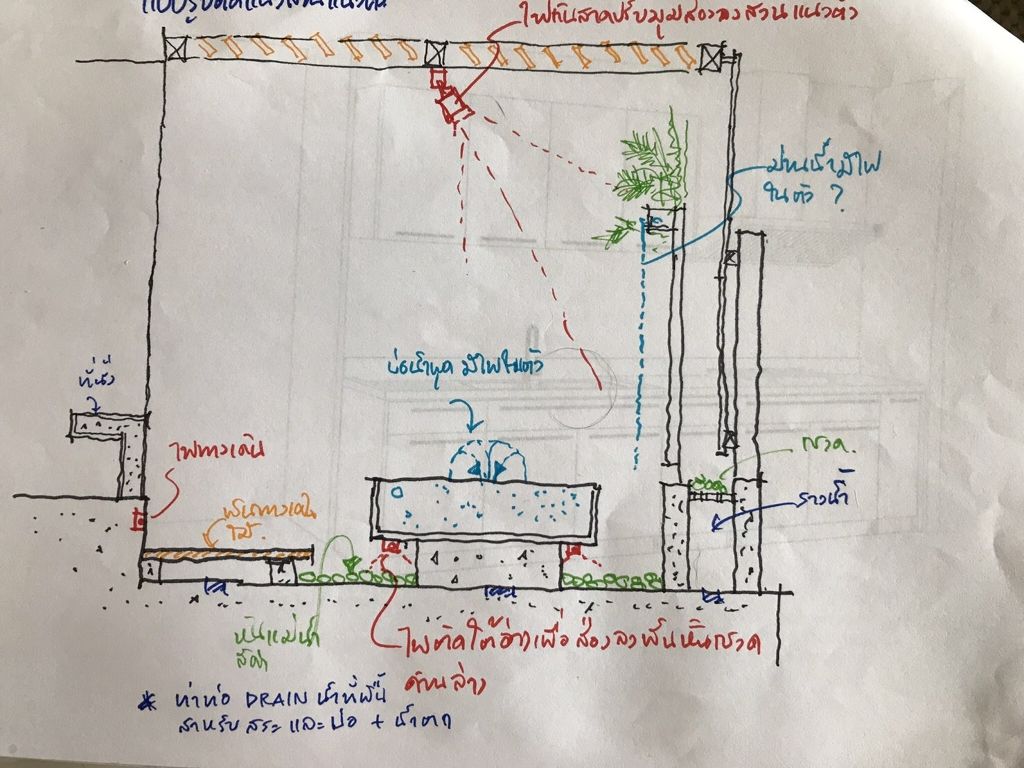 แบบรูปตัดแนวสวนแนวตั้ง
ไฟกันสาดปรับมุมส่องลงสวนแนวตั้ง
ม่านน้ำมีไฟ
ในตัว ?
บ่อน้ำพุด มีไฟในตัว
ที่นั่ง
ไฟทางเดิน
กรวด.
รางน้ำ
พื้นทางเดิน
ไม้.
หินแม่น้ำ
สีดำ
ไฟติดใต้อ่างเพื่อส่องลงพื้นหินกรวด
ด้านล่าง
* ทำท่อ DRAIN น้ำที่พื้น
สำหรับ สระ และ บ่อ + น้ำตก